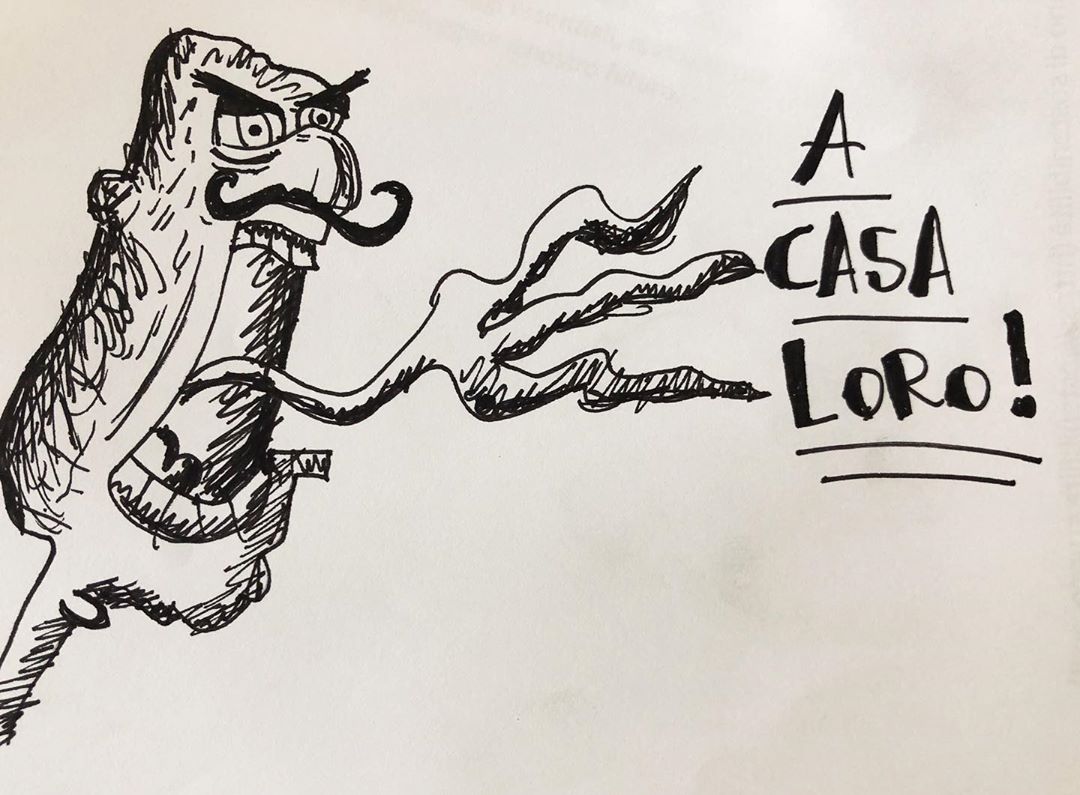 A
CASA
LORO!